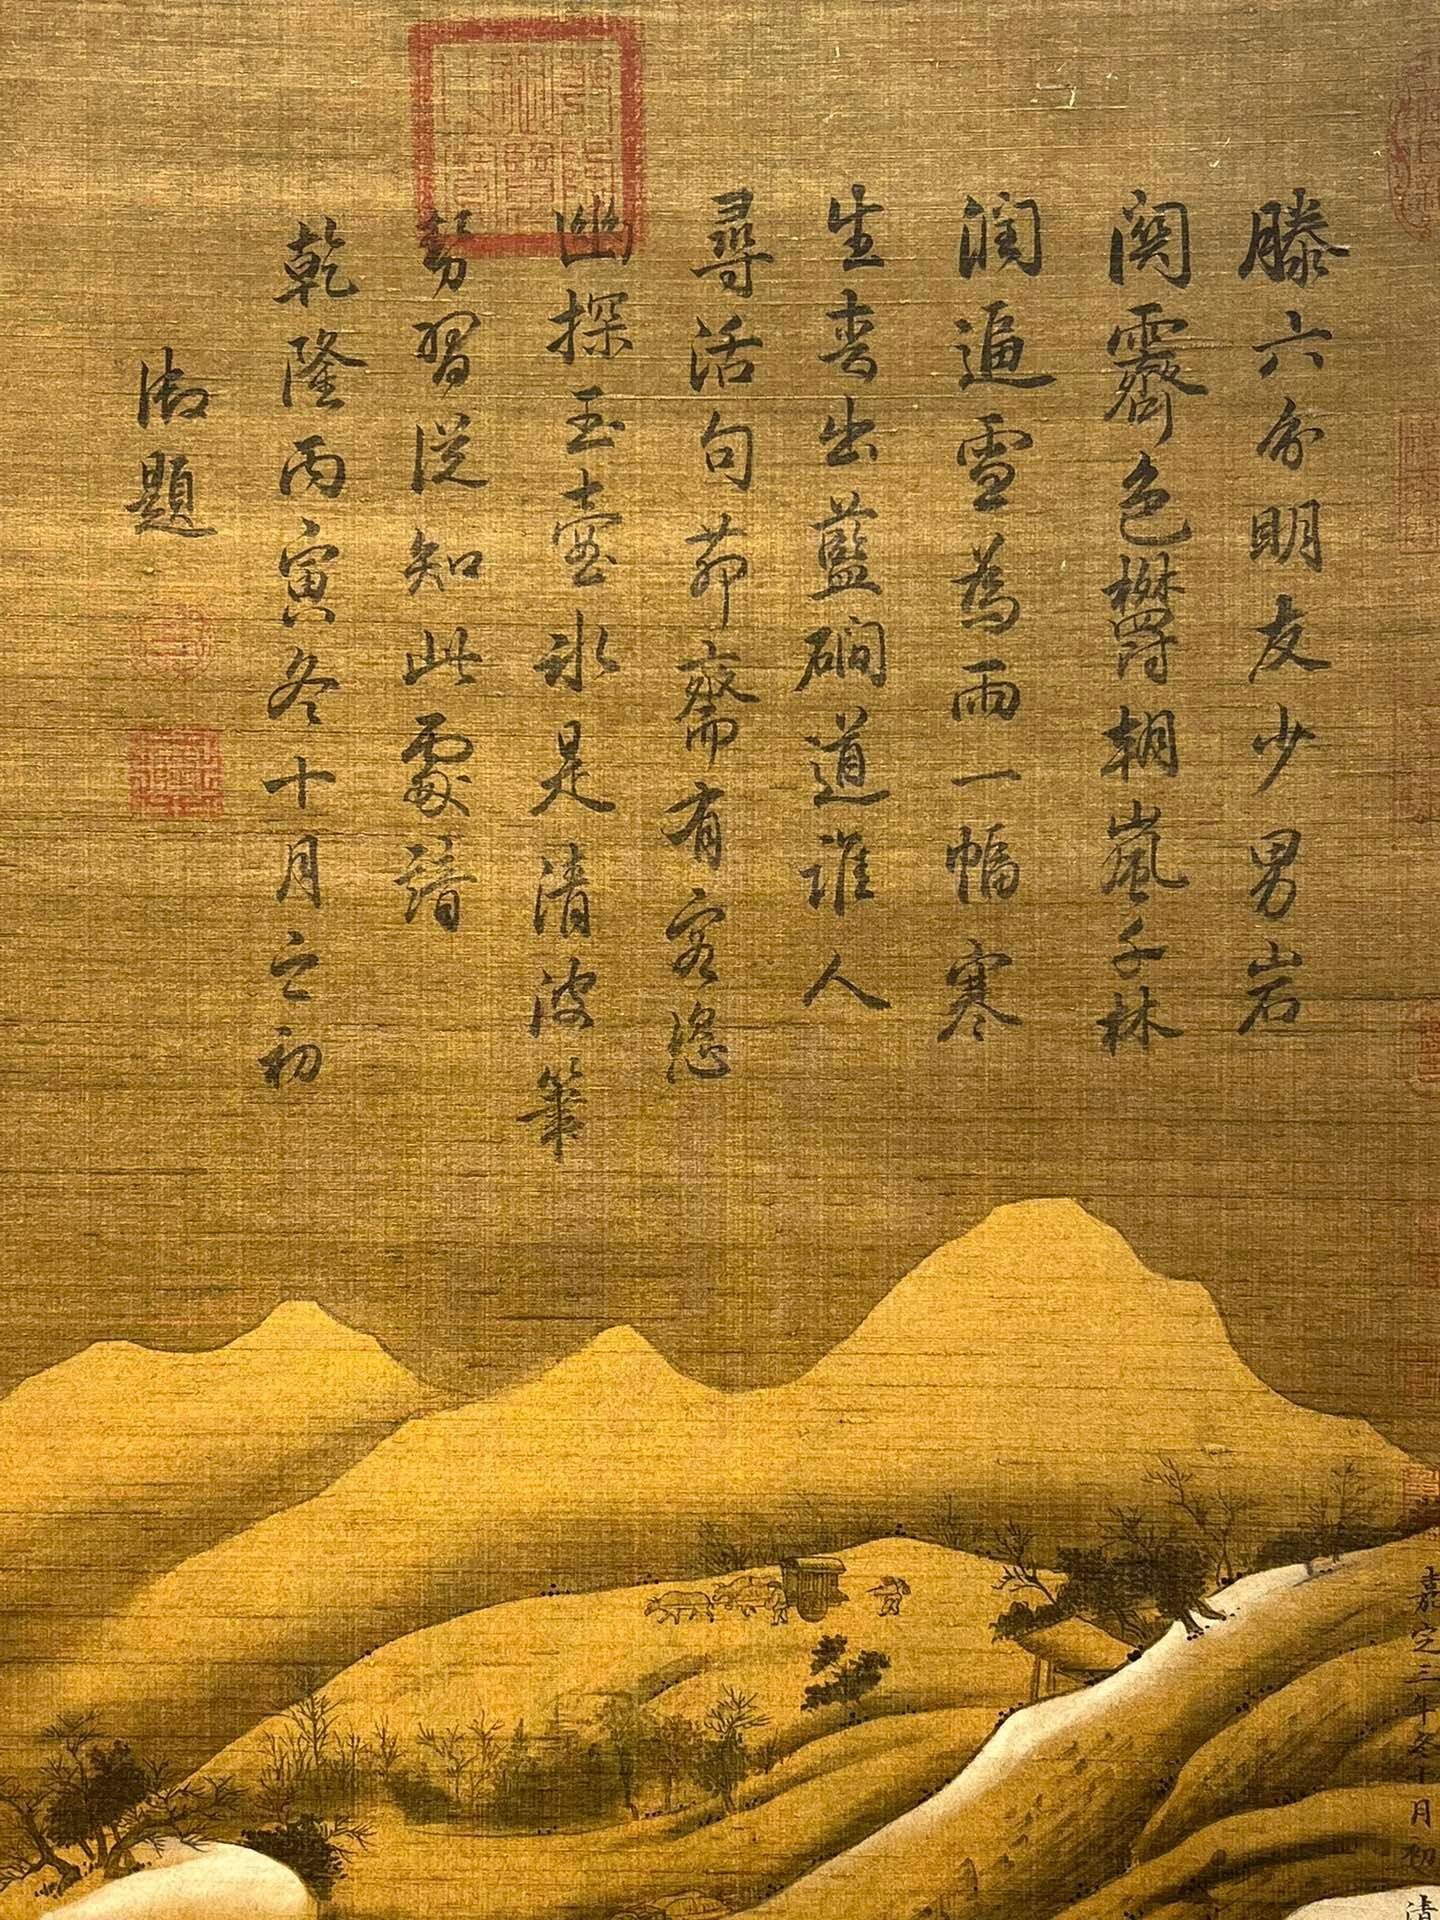 滕六分明友少男岩
関霽色欝朝嵐千林
潤逼雪為雨一幅寒
生青出藍磵道誰人
尋活句茆齋有客恣
幽探玉壺氷是清波筆
剪習從知此處諳
乾隆丙寅冬十月之初
御題
嘉定三年冬十月初
清